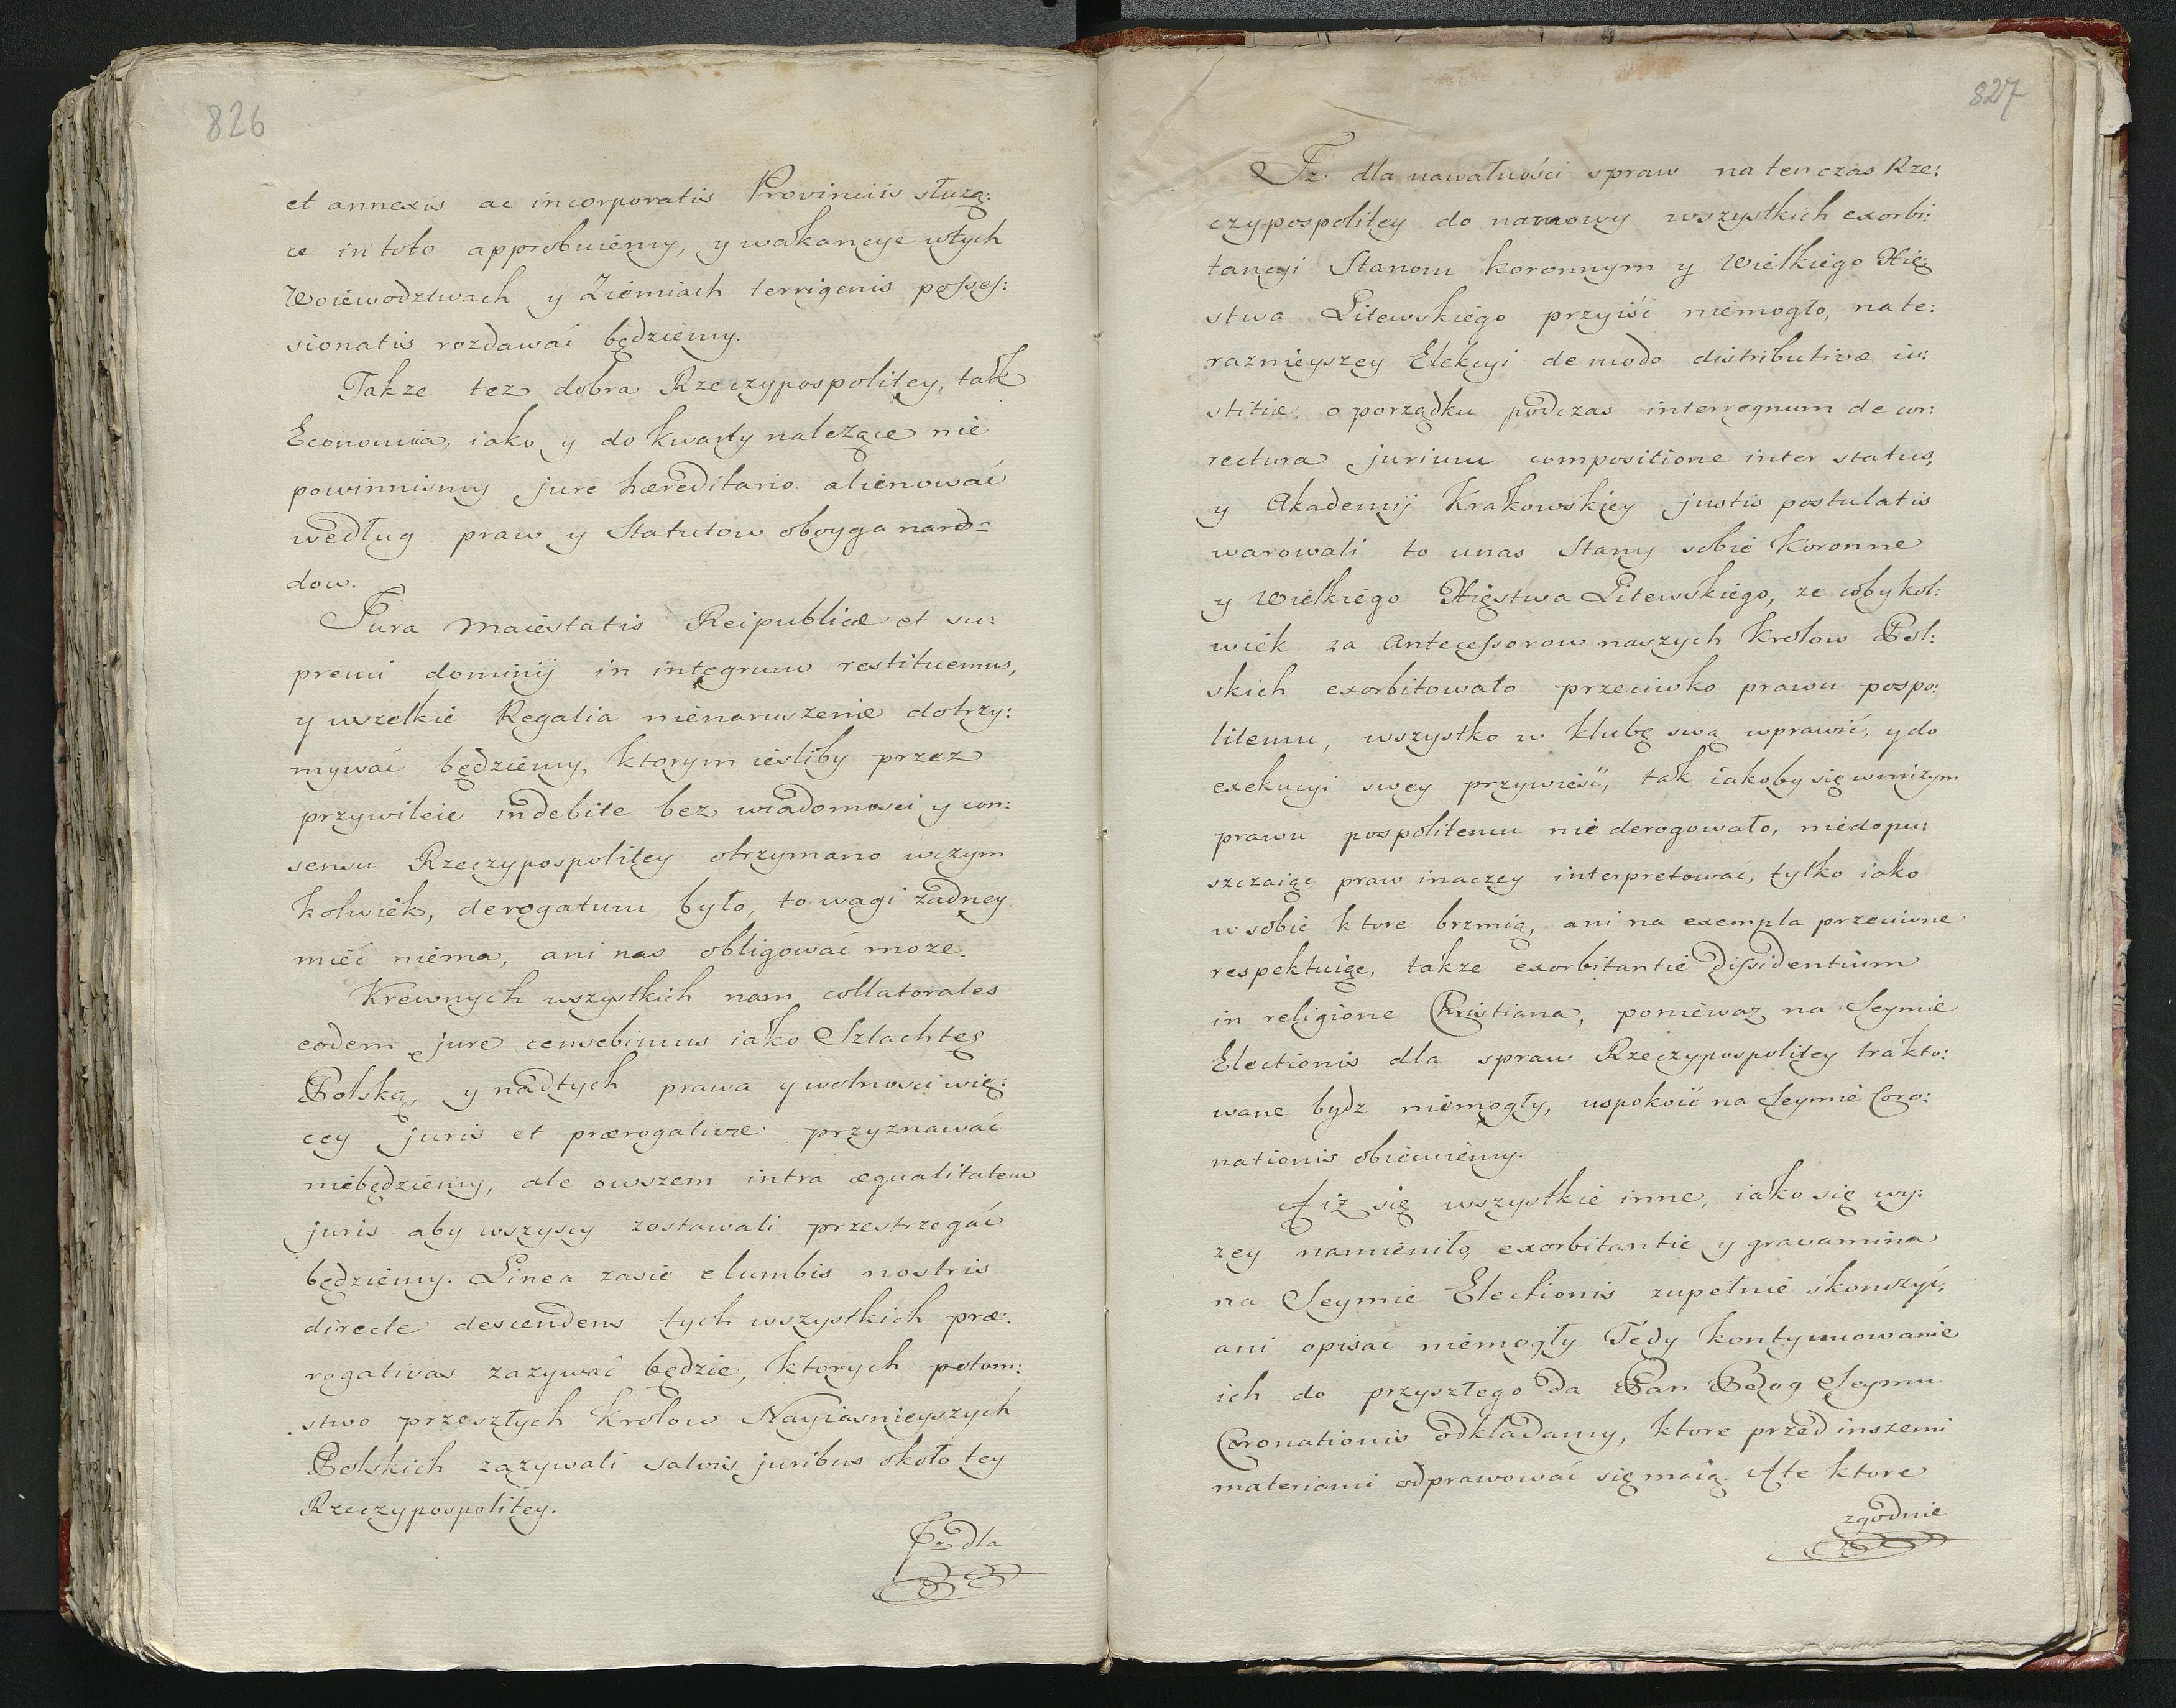 826
et annexis ac incorporatis Provinciis służą:
ce in toto approbuiemy, y wakancye wtych
Woiewodztwach y Ziemiach terrigenis posses:
sionatis rozdawać będziemy.
Takze tez dobra Rzeczypospolitey, tak
Economia, iako y do kwarty nalezące nie
powinnismy jure hæreditario alienować
według praw y Statutow oboyga naro=
dow.
Jura Maiestatis Reipublicæ et su:
premi dominij in integrum restituemus,
y wszelkie Regalia nienaruszenie dotrzy:
mywać będziemy, ktorym iesliby przez
przywileie indebite bez wiadomosci y con:
sensu Rzeczypospolitey otrzymano wczym
kolwiek, derogatum było, to wagi żadney
mieć niema, ani nas obligować moze.
Krewnych wszystkich nam collatorales
eodem jure censebimus iako Szlachtę
Polską, y nadtych prawa y wolnosci wię:
cey juris et prærogativæ przyznawać
niebędziemy, ale owszem intra æqualitatem
juris aby wszyscy zostawali przestrzegać
będziemy. Linea zasie elumbis nostris
directe descendens tych wszystkich præ:
rogativas zazywać będzie, ktorych potom:
stwo przeszłych Krolow Nayiasnieyszych
Polskich zazywali salvis juribus około tey
Rzeczypospolitey.
Iz dla
827
Iz dla nawałności spraw na ten czas Rze:
czypospolitey do namowy wszystkich exorbi:
tancyi Stanom koronnym y Wielkiego Xię:
stwa Litewskiego przyiść niemogło, na te:
raznieyszey Elekcyi de modo distributivæ iu:
stitiæ, o porządku podczas interregnum de cor:
rectura jurium compositione inter status,
y Akademij Krakowskiey justis postulatis
warowali to unas Stany sobie Koronne
y Wielkiego Xięstwa Litewskiego, ze cobykol:
wiek za Antecessorow naszych Krolow Pol:
skich exorbitowało przeciwko prawu pospo:
litemu, wszystko w klubę swą wprawić, y do
exekucyi swey przywieść, tak iakoby się wniczym
prawu pospolitemu nie derogowało, niedopu:
szczaiąc praw inaczey interpretować, tylko iako
w sobie ktore brzmią, ani na exempla przeciwne
respektuiąc, takze exorbitantie dissidentium
in religione Christiana, poniewaz na Seymie
Electionis dla spraw Rzeczypospolitey trakto:
wane bydz niemogły, uspokoić na Seymie Coro:
nationis obiecuiemy.
A iz się wszystkie inne, iako się wy:
zey namieniło, exorbitantie y gravamina
na Seymie Electionis zupełnie skonczyć,
ani opisać niemogły. Tedy kontynuowanie
ich do przyszłego da Pan Bog Seymu
Coronationis odkładamy, ktore przed inszemi
materiami odprawować się maią. A te ktore
zgodnie